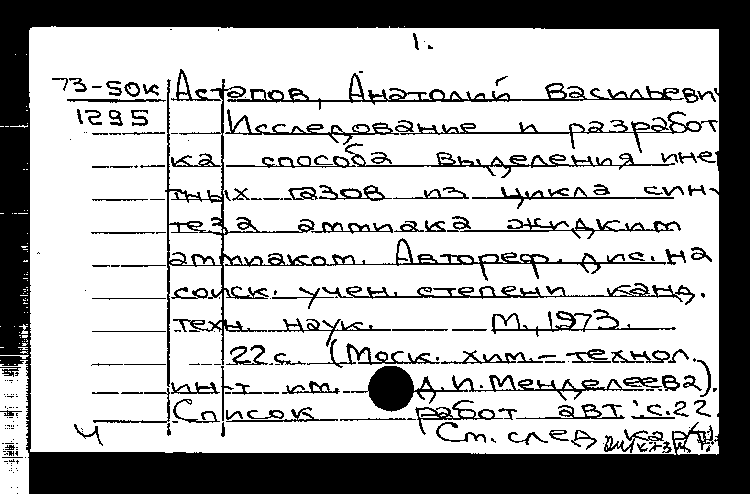 1.
73-50к Астапов, Анатолий Васильевич
1295 Исследование и разработ
ка способа выделения инер
тных газов из цикла син-
теза аммиака жидким
аммиаком. Автореф. дис. на
соиск. учен. степени канд.
техн. наук. М., 1973.
22 с. (Моск. хим.-технол.
ин-т им. Д.И. Менделеева).
Список работ авт.: с.22.
Ч См. след карт